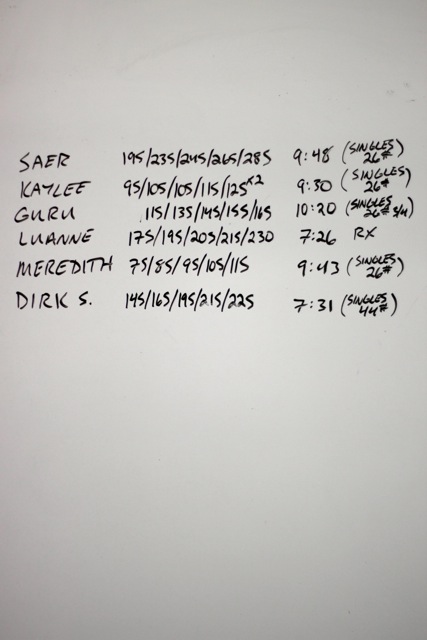 SAER 195/235/245/265/285 9:48 (SINGLES 26#)
KAYLEE 95/105/105/115/125x2 9:30 (SINGLES 26#)
GURU 115/135/145/155/165 10:20 (SINGLES 26# 3/4)
LUANNE 175/195/205/215/230 7:26 RX
MEREDITH 75/85/95/105/115 9:43 (SINGLES 26#)
DIRK S. 145/165/195/215/225 7:31 (SINGLES 44#)